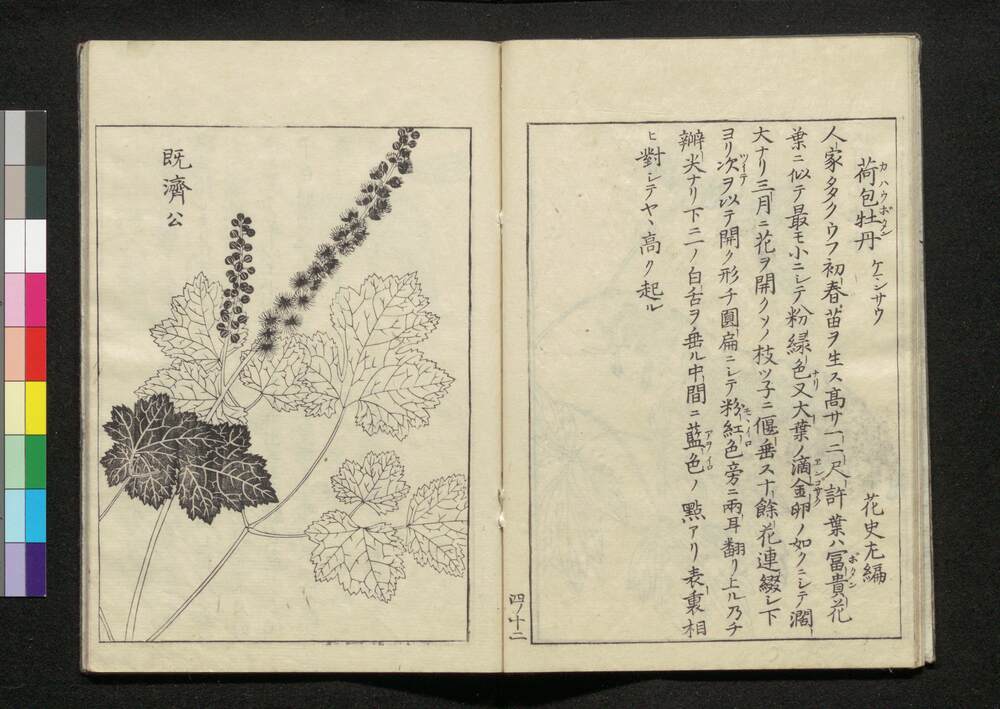 荷包牡丹 ケマンサウ 花史左編
カハウボタン
人家多クウフ初春苗ヲ生ス高サ一二尺許葉ハ冨貴花
ボタン
葉ニ似テ最モ小ニシテ粉緑色ナリ又大葉ノ滴金卵ノ如クニシテ濶
ヱンゴサク
大ナリ三月ニ花ヲ開クソノ枝ツ子ニ偃垂ス十餘花連綴シ下
ヨリ次ヲ以テ開ク形チ圓扁ニシテ粉紅色旁ニ兩耳翻リ上ル乃チ
ツイテ
モヽイロ
瓣尖ナリ下二ノ白舌ヲ垂ル中間ニ藍色ノ點アリ表裏相
アヲイロ
ヒ對シテヤヽ高ク起ル
四ノ十二
既濟公